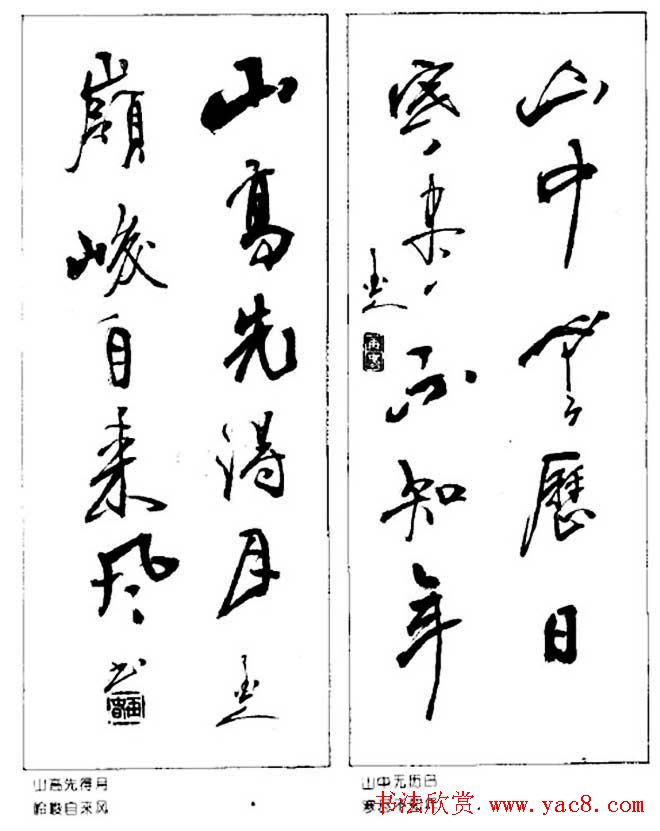 山中無歷日
寒尽不知年
山高先得月
嶺峻自来风
书
山高先得月
岭峻自来风
山中无历日
寒尽不知年
书法欣赏 www.yac8.com